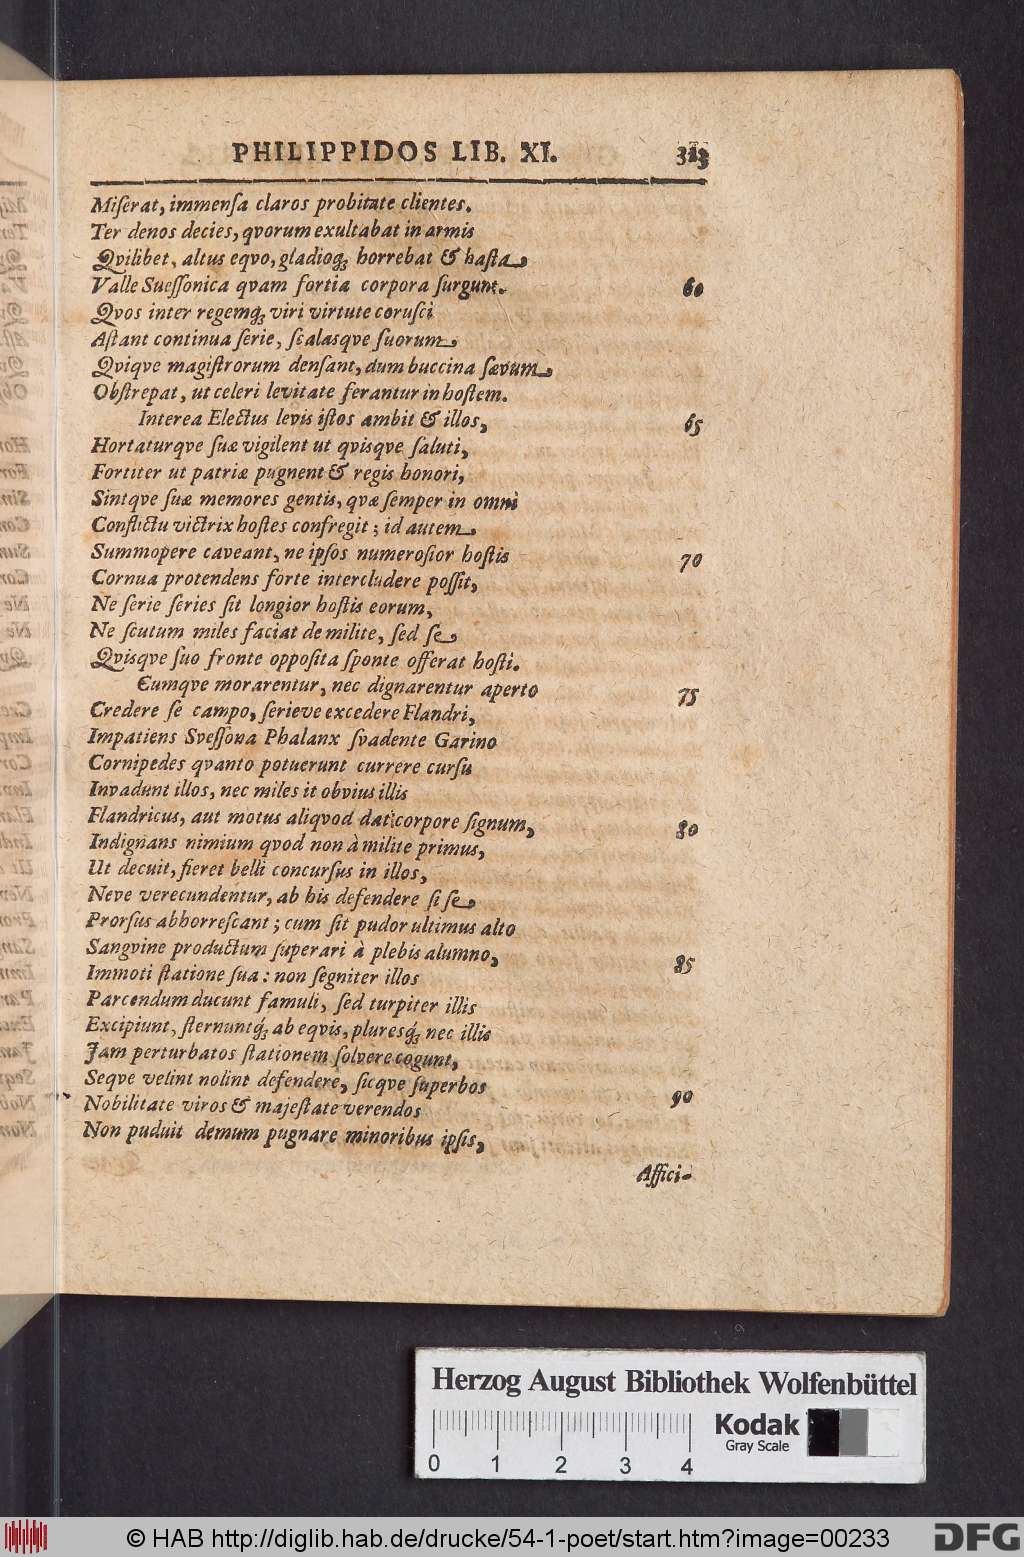 PHILIPPIDOS LIB. XI.
Miſerat, immenſa claros probitate clientes.
Ter denos decies, qvorum exultabat in armis
Qvilibet, altus eqvo, gladioq; horrebat & haſta
Valle Sueſſonica qvam fortia corpora ſurgunt. 60
Qvos inter regemq; viri virtute coruſci
Aſtant continua ſerie, ſcalasqve ſuorum
Qviqve magiſtrorum denſant, dum buccina ſævum
Obſtrepat, ut celeri levitate ferantur in hoſtem.
Interea Electus levis iſtos ambit & illos, 65
Hortaturqve ſuæ vigilent ut qvisqve ſaluti,
Fortiter ut patriæ pugnent & regis honori,
Sintqve ſuæ memores gentis, qvæ ſemper in omni
Conflictu victrix hoſtes confregit; id autem
Summopere caveant, ne ipſos numeroſior hoſtis 70
Cornua protendens forte intercludere poſſit,
Ne ſerie ſeries ſit longior hoſtis eorum,
Ne ſcutum miles faciat de milite, ſed ſe
Qvisqve ſuo fronte oppoſita ſponte offerat hoſti.
Eumqve morarentur, nec dignarentur aperto 75
Credere ſe campo, ſerieve excedere Flandri,
Impatiens Sveſſona Phalanx ſvadente Garino
Cornipedes qvanto potuerunt currere curſu
Invadunt illos, nec miles it obvius illis
Flandricus, aut motus aliqvod dat corpore ſignum, 80
Indignans nimium qvod non à milite primus,
Ut decuit, fieret belli concurſus in illos,
Neve verecundentur, ab his defendere ſi ſe
Prorſus abhorreſcant; cum ſit pudor ultimus alto
Sangvine productum ſuperari à plebis alumno, 85
Immoti ſtatione ſua: non ſegniter illos
Parcendum ducunt famuli, ſed turpiter illis
Excipiunt, ſternuntq́; ab eqvis, pluresq́; nec illis
Jam perturbatos ſtationem ſolvere cogunt,
Seqve velint nolint defendere, ſicqve ſuperbos
Nobilitate viros & majeſtate verendos 90
Non puduit demum pugnare minoribus ipſis,
Affici-
Herzog August Bibliothek Wolfenbüttel
Kodak
Gray Scale
0 1 2 3 4
© HAB http://diglib.hab.de/drucke/54-1-poet/start.htm?image=00233
DFG